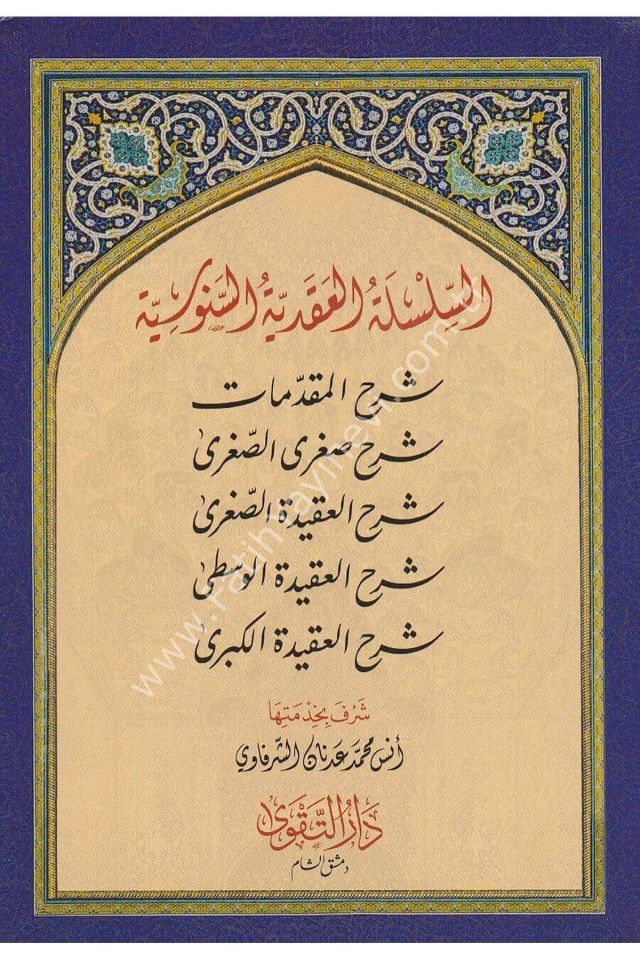 السِّلْسِلَةُ العَقَدِيَّةُ السَّنُوسِيَّة
شرح المقدّمات
شرح صغرى الصّغرى
شرح العقيدة الصّغرى
شرح العقيدة الوسطى
شرح العقيدة الكبرى
شَرُفَ بِخِدْمَتِهَا
أنس محمّد عدنان الشّرفاوي
دَارُ التَّقْوَى
دمشق الشام
www.Fatihyayinevi.com.tr